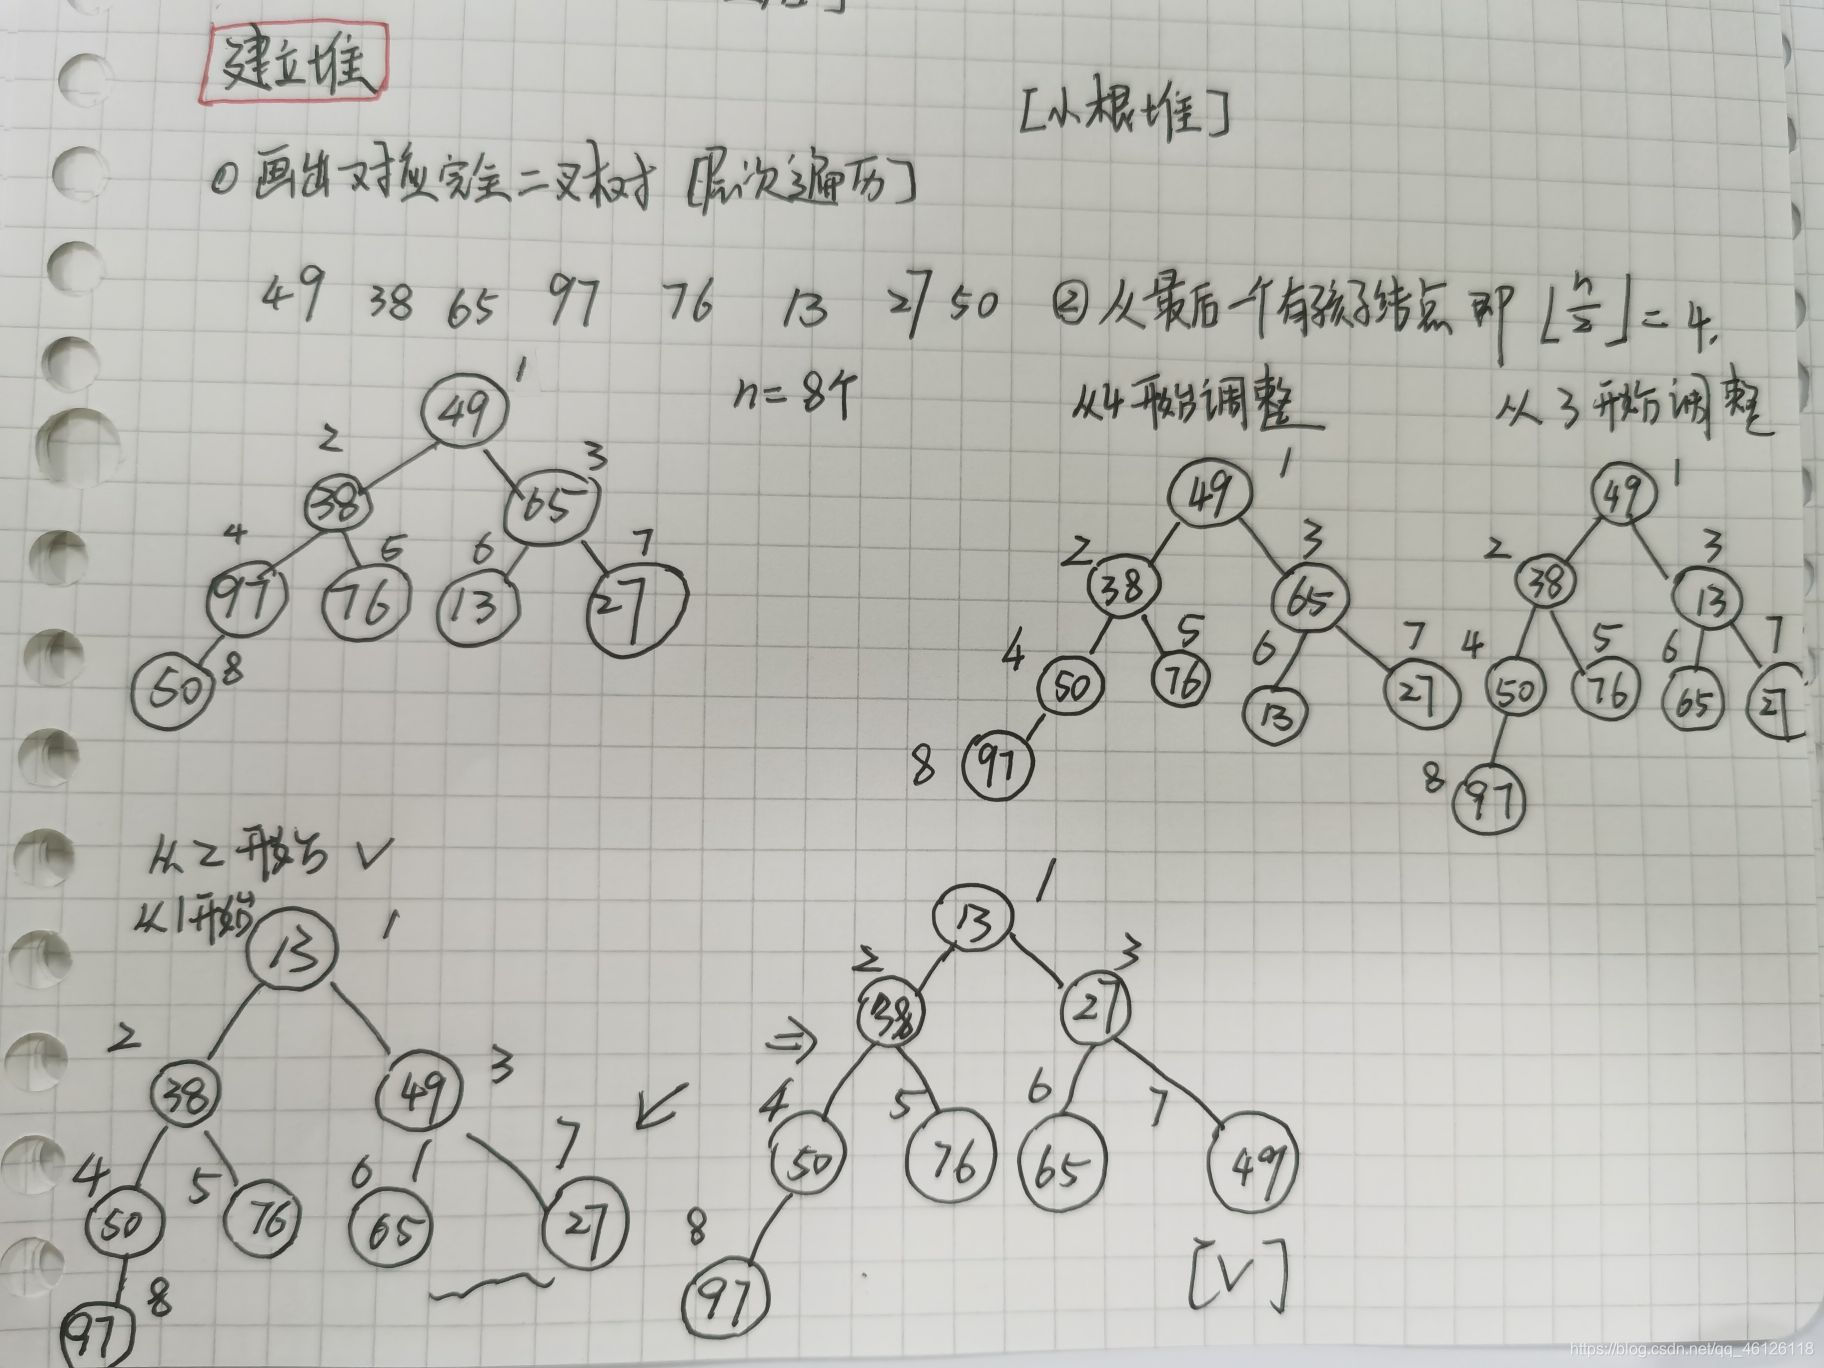 建立堆
[小根堆]
① 画出对应完全二叉树 [层次遍历]
49 38 65 97 76 13 27 50
n=8个
② 从最后一个有孩子结点 即 ⌊n/2⌋=4.
从4开始调整
从3开始调整
1
49
2 3
38 65
4 5 6 7
97 76 13 27
50 8
1
49
2 3
38 65
4 5 6 7
50 76 13 27
8 97
1
49
2 3
38 13
4 5 6 7
50 76 65 27
8 97
从2开始 √
从1开始
13 1
2 3
38 49
4 5 6 7
50 76 65 27
97 8
1
13
2 3
⇒ 38 27
4 5 6 7
50 76 65 49
8 97
[√]
https://blog.csdn.net/qq_46126118